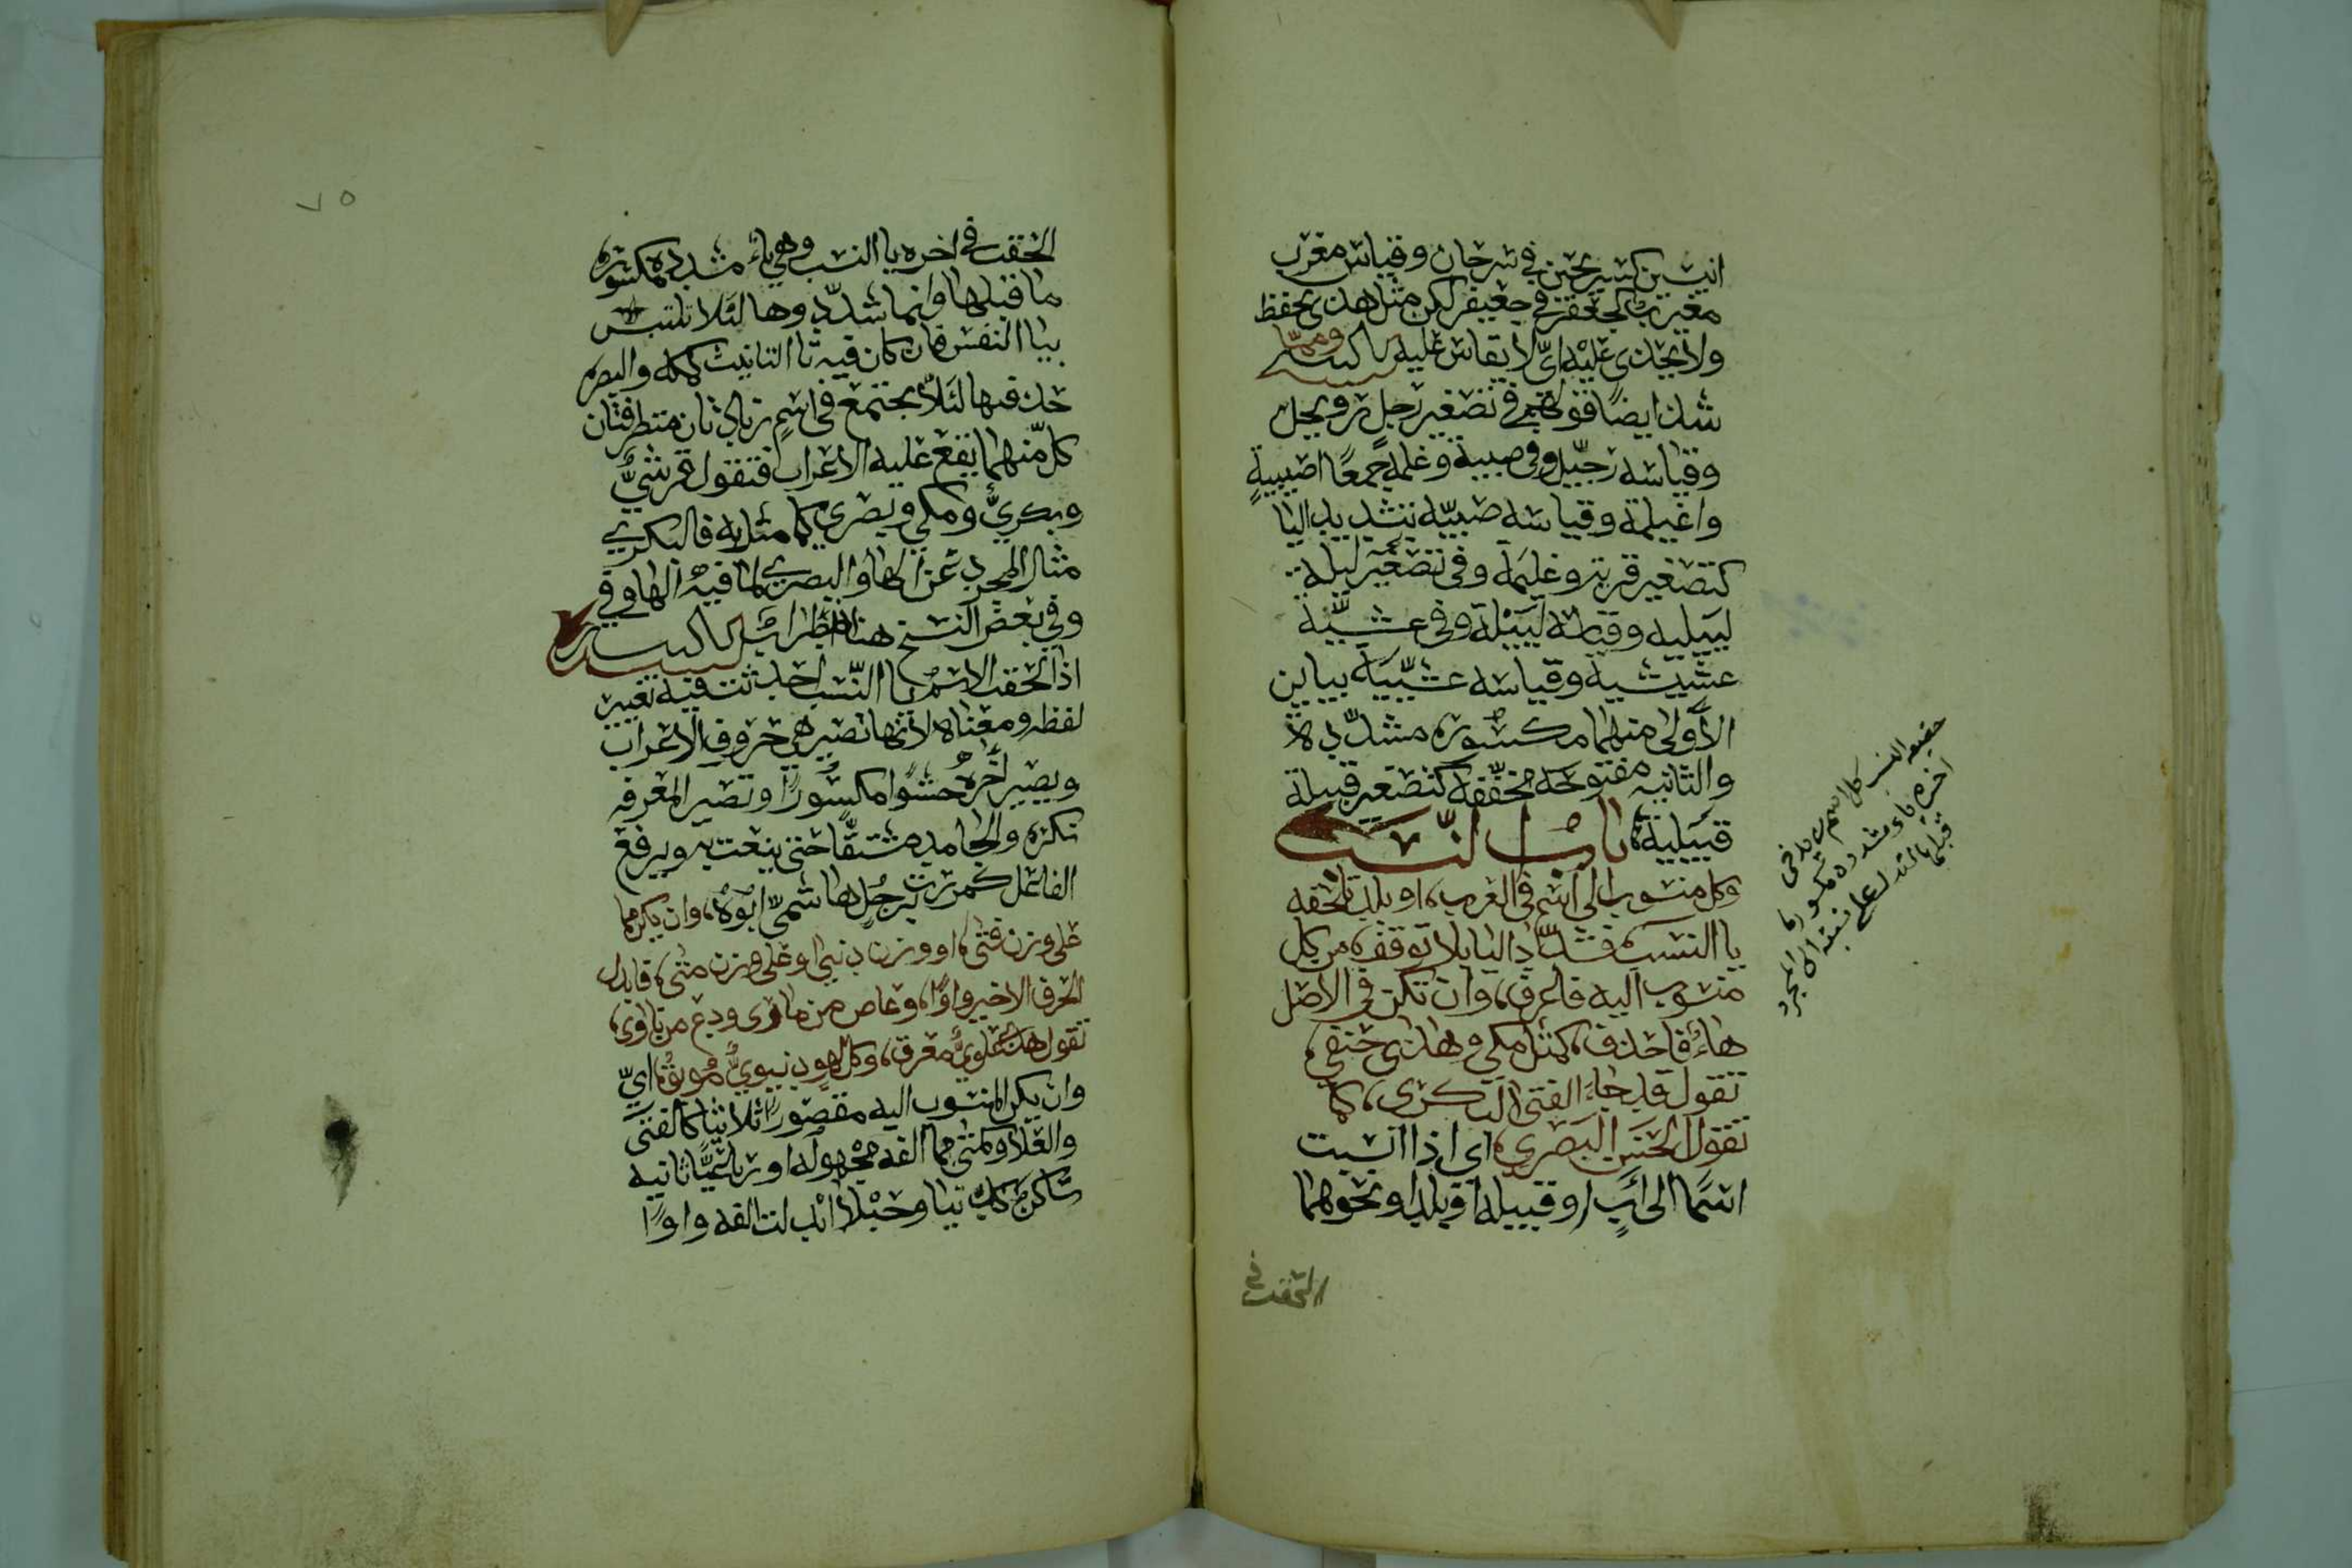 انيسين كسريحين في سرحان وقياس مغرب
مغيرب كجعفر في جعيفر لكن مثل هذا يحفظ
ولا يحذى عليه اي لا يقاس عليه تنبيه ومما
شذ ايضا قولهم في تصغير رجل رويجل
وقياسه رجيل وفي صبية وغلمة جمعًا اصيبيةٍ
واغيلمة وقياسه صبيّه بتشديد اليا
كتصغير قرية وغليمة وفي تصغير ليلة
لييلية وقياسه لييْلة وفي عشيّة
عشيشية وقياسه عشيّيَة بياين
الأولى منهما مكسورة مشدّدة
والثانيه مفتوحة مخفّفة كتصغير قبيلة
قبيّلية باب النسب
وكل منسوب الى اسم في العرب، او بلدة تلحقه
يا النسب، فشدّد اليا بلا توقف، من كل
منسوب اليه فاعرف، وان تكن في الاصل
هاءٌ فاحذف، كمثل مكي وهذا حنفي،
تقول قد جاءَ الفتى البكري، كما
تقول الحسن البصري، اي اذا انسبت
اسمًا الى ابٍ او قبيله او بلد او نحوهما
التحقت في
حقيقه النسب كل اسم زيد في
اخره ياء مشدده مكسور ما
قبلها لتدل على نسبته الى المجرد
٧٥
الحقت في اخره يا النسب وهي ياءٌ مشدده مكسوره
ما قبلها وانما شدّدوها لئلا تلتبس
بيا النفس فان كان فيه تا التانيث كمكه والبصره
حذفتها لئلّا يجتمع في اسمٍ زيادتان متطرفتان
كل منهما يقع عليه الاعراب فتقول قرشيٌّ
وبكريٌّ ومكي وبصري كما مثل به فالبكري
مثال المجرد عن الها والبصري لما فيه الها وفي
وفي بعض النسخ هنا اضطراب تنبيه
اذا الحقت الاسم يا النّسب احدثت فيه تغيير
لفظه ومعناه لانها تصير هي حروف الاعراب
ويصير اخره حشوًا مكسورًا وتصير المعرفه
نكره والجامد مشتقًّا حتى ينعت به ويرفع
الفاعل كمررت برجُلٍ هاشميّ ابوهُ، وان يكن مما
على وزن فتى، او وزن دنيى او على وزن متى، فابدل
الحرف الاخير واوًا، وعاص من مارى ودع من ناوى،
تقول هذا علويٌّ معرق، وكل لهوٍ دنيويٌّ مُوبق، اي
وان يكن المنسوب اليه مقصورًا ثلاثيًّا كالفتى
والعلا وكمتى مما الفه مجهوله او رباعيًّا ثانيه
ساكن كدنيا وحبْلا ابدلت الفه واوًا